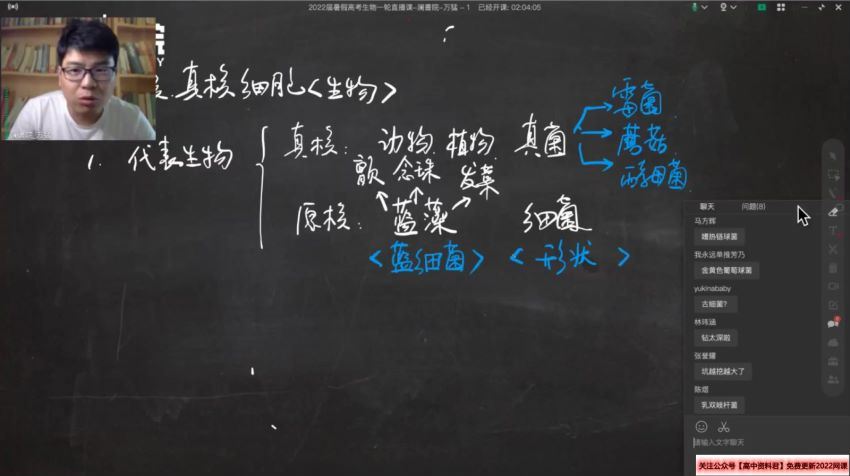 2022届暑假高考生物一轮直播课-澜書院-万猛 - 1 已经开课: 02:04:05
真核细胞<生物>
1. 代表生物
真核: 动物. 植物. 真菌
霉菌
蘑菇
酵母菌
颤 念珠 发菜
原核: 蓝藻 细菌
<蓝细菌> <形状>
聊天 问题(8)
马方辉
嗜热链球菌
我永远单推芳乃
金黄色葡萄球菌
yukinababy
古细菌?
林玮涵
钻太深啦
张誉耀
坑越挖越大了
陈煜
乳双岐杆菌
请输入文字聊天
关注公众号【高中资料君】免费更新2022网课